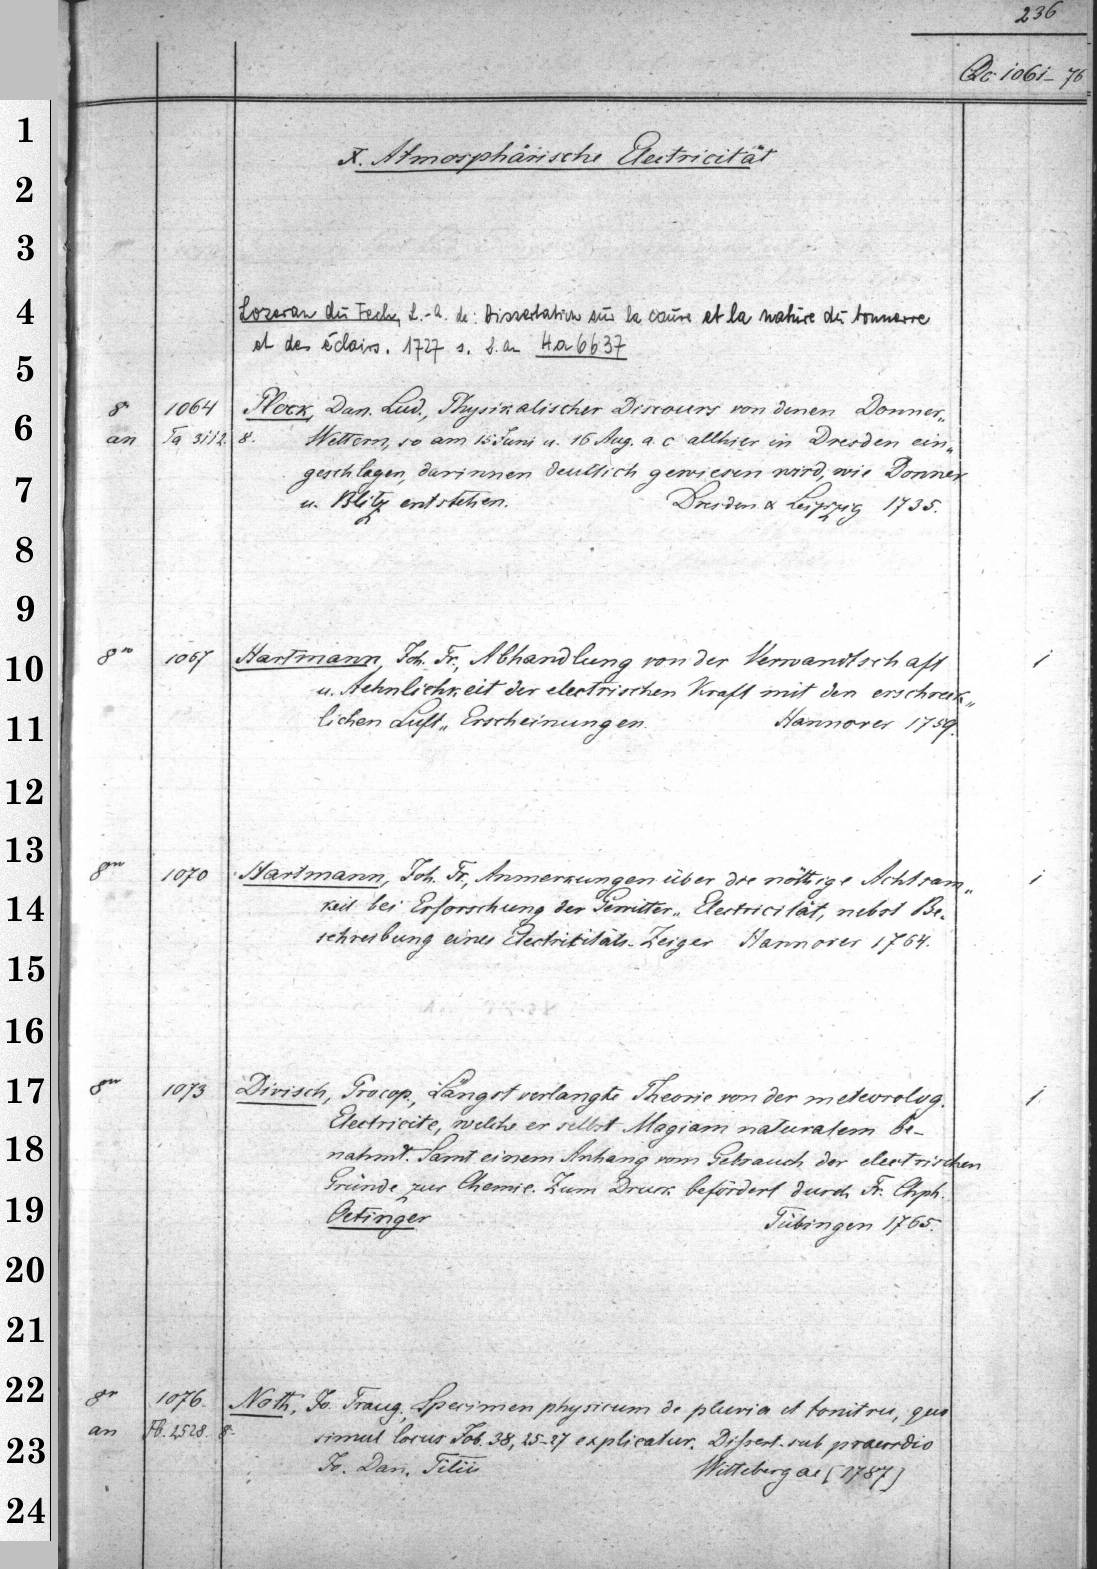 236
Qc 1061-76
X. Atmosphärische Electricität
Lozeran du Fech, L.-A. de: Dissertation sur la cause et la nature du tonnerre
et des éclairs. 1727 s. S. an Ha 6637
8° 1064 Plock, Dan. Lud., Physikalischer Discours von denen Donner„
an Ta 3112. 8. Wettern, so am 15 Juni u. 16 Aug. a. c allhier in Dresden ein„
geschlagen, darinnen deutlich gewiesen wird, wie Donner
u. Blitz entstehen. Dresden & Leipzig 1735.
8vo 1067 Hartmann, Joh. Fr., Abhandlung von der Verwandtschaft 1
u. Aehnlichkeit der electrischen Kraft mit den erschreck„
lichen Luft„ Erscheinungen. Hannover 1759.
8vo 1070 Hartmann, Joh. Fr., Anmerkungen über die nöthige Achtsam„ 1
keit bei Erforschung der Gewitter„ Electricität, nebst Be-
schreibung eines Electricitäts-Zeiger Hannover 1764.
8vo 1073 Divisch, Procop., Längst verlangte Theorie von der meteorolog. 1
Electricite, welche er selbst Magiam naturalem be-
nahmt. Samt einem Anhang vom Gebrauch der electrischen
Gründe zur Chemie. Zum Druck befördert durch Fr. Chph.
Oetinger Tübingen 1765.
8° 1076. Noth, Jo. Traug., Specimen physicum de pluvia et tonitru, quo
an Fb. 2528. 8. simul locus Job. 38, 25-27 explicatur. Dissert. sub praesidio
Jo. Dan. Titii Wittebergae [1787]
1
2
3
4
5
6
7
8
9
10
11
12
13
14
15
16
17
18
19
20
21
22
23
24